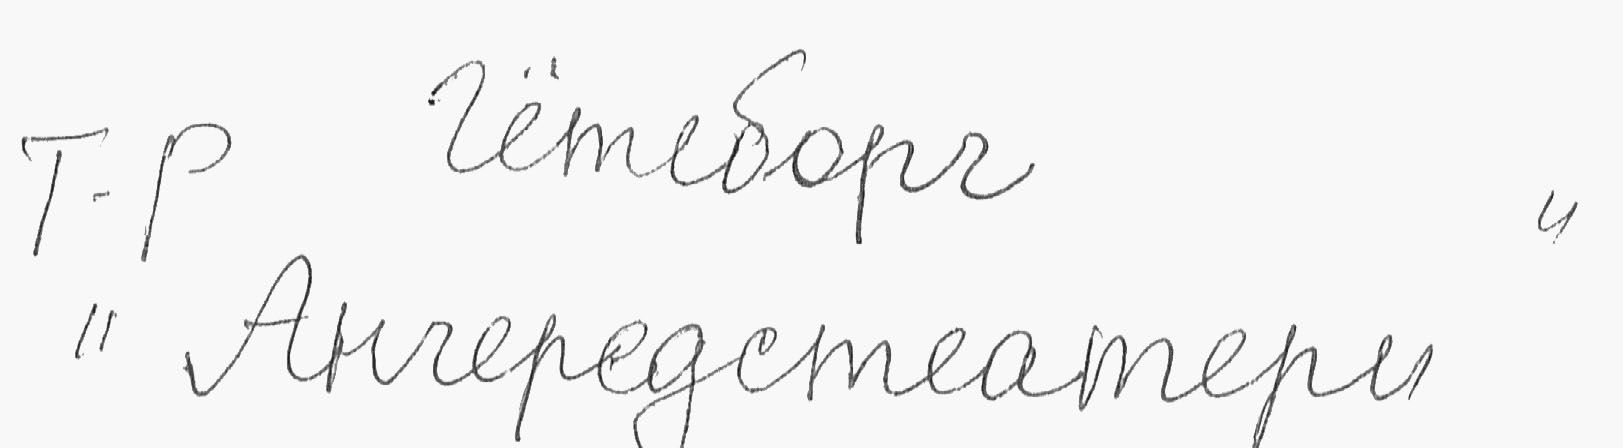 Т-Р Гётеборг
"Ангередстеатерн"